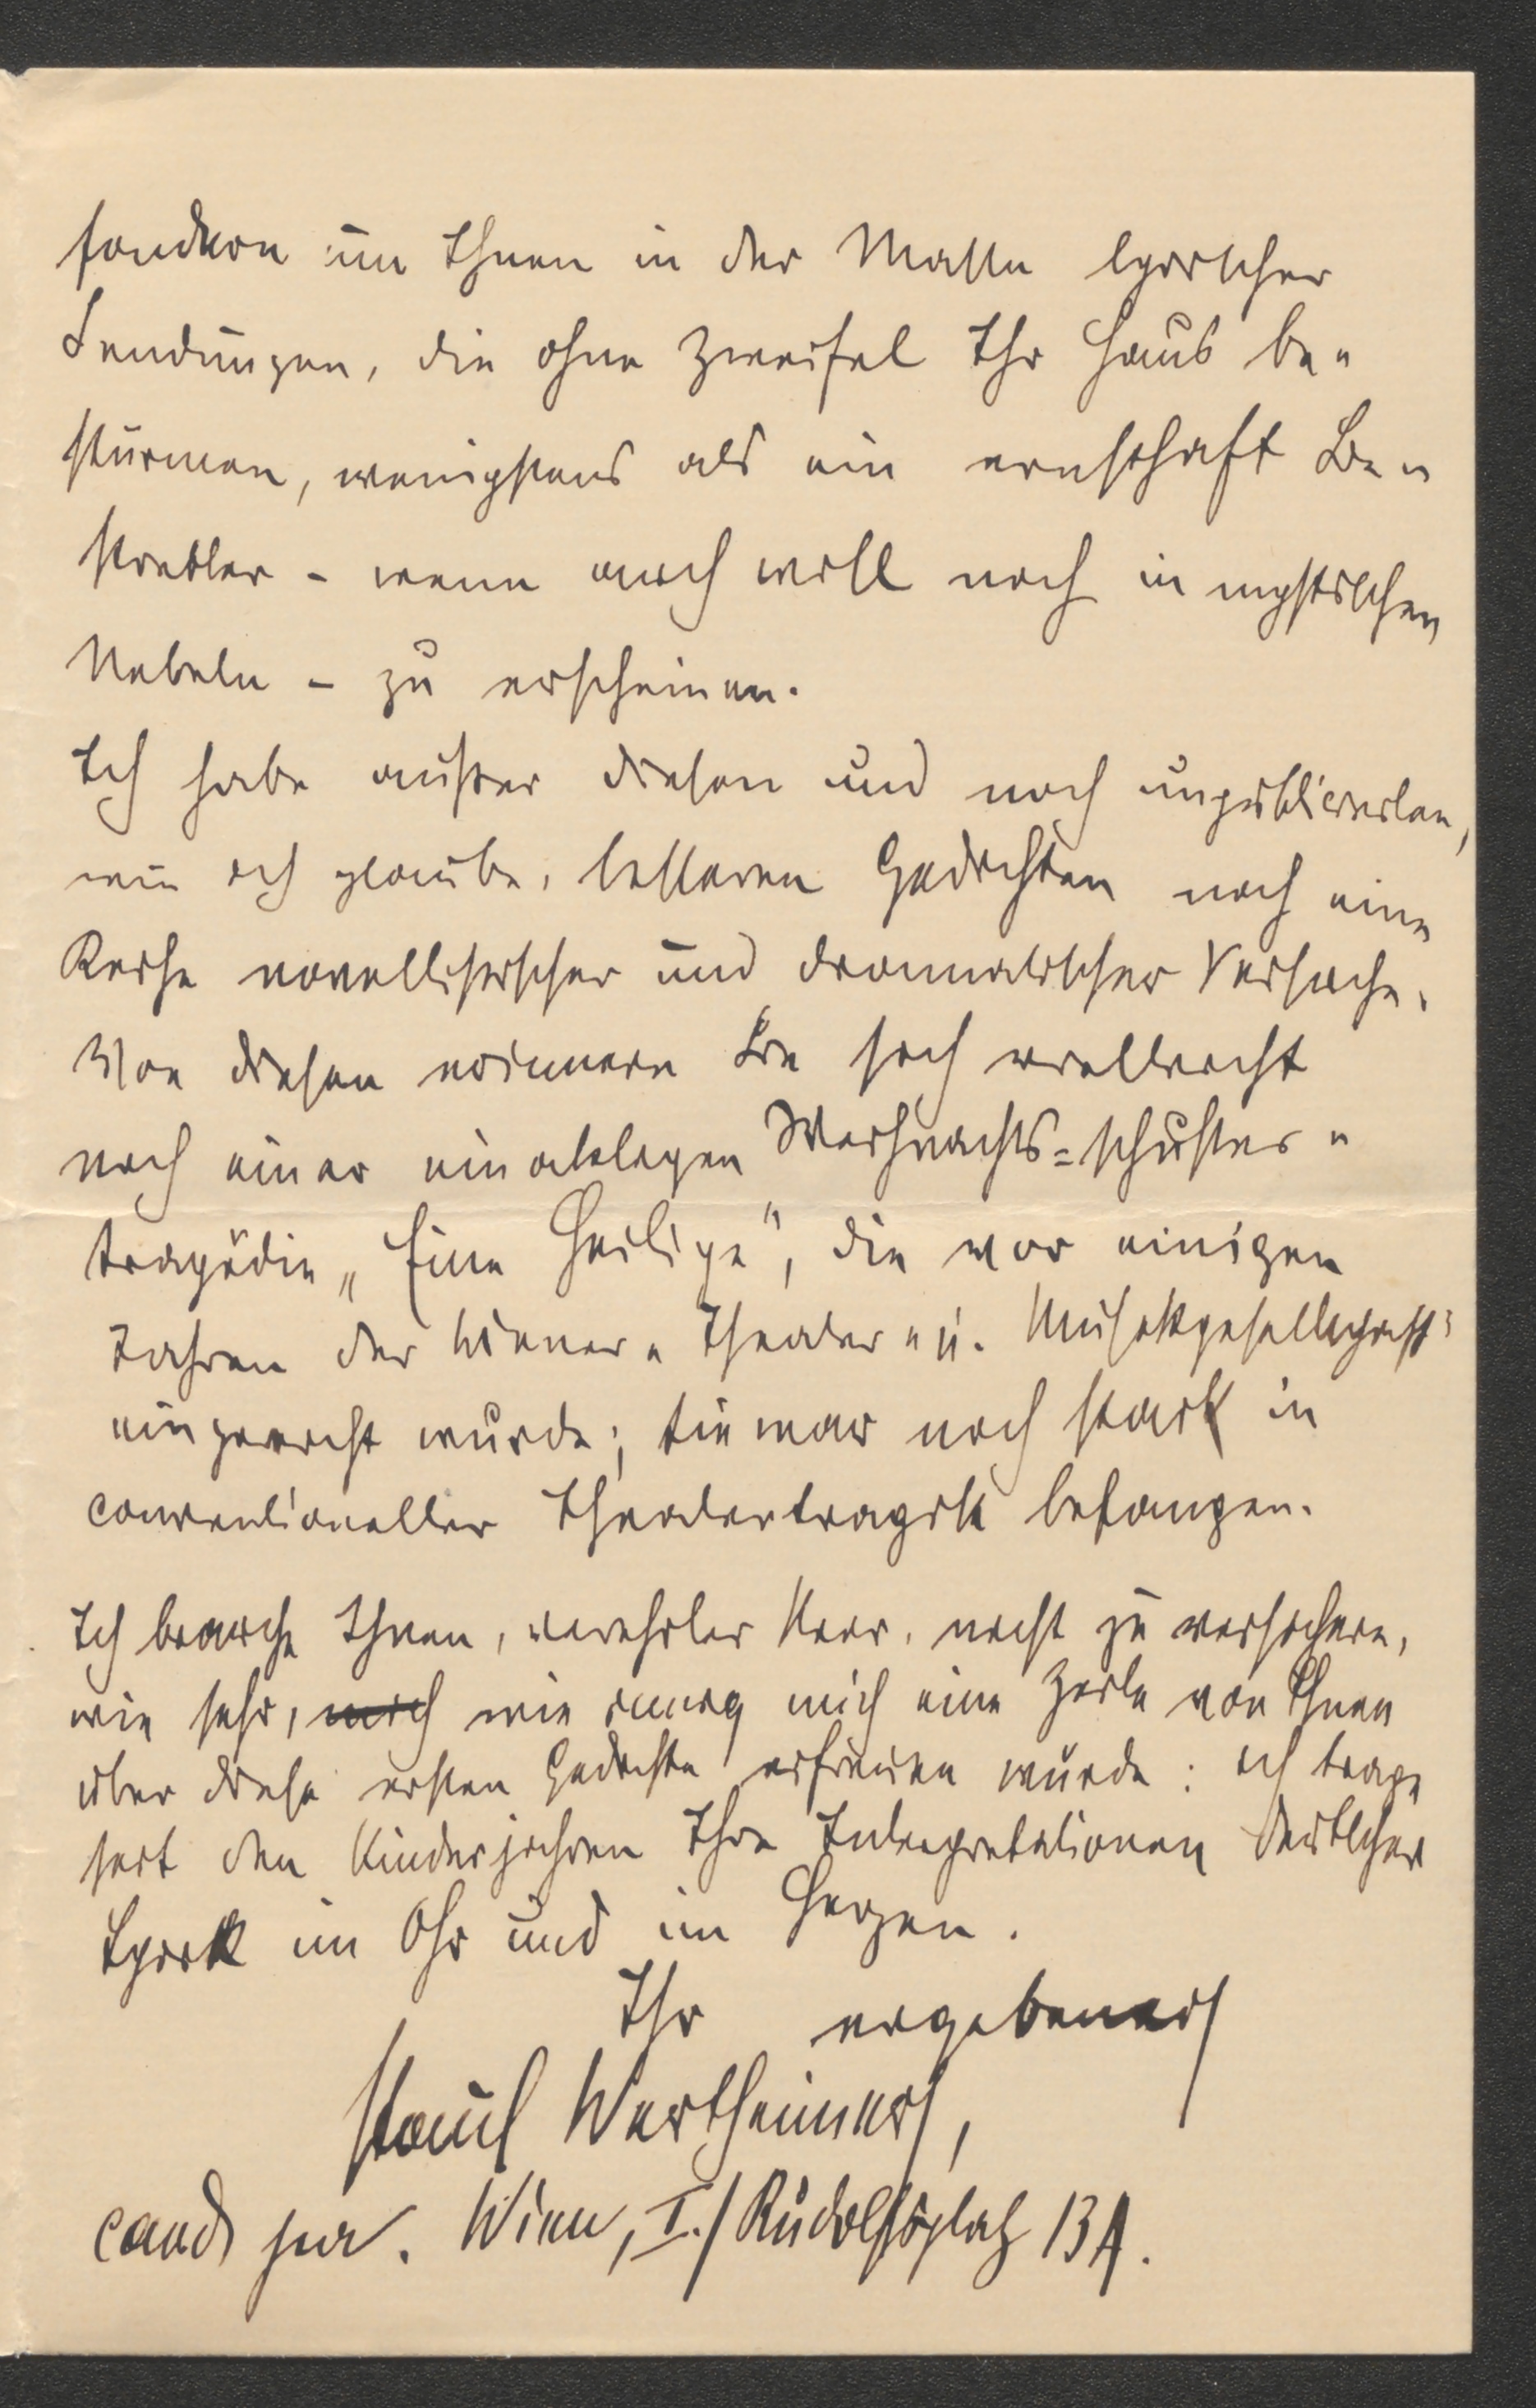 sondern um Ihnen in der Masse lyrischer
Sendungen, die ohne Zweifel Ihr Haus be-
stürmen, wenigstens als ein ernsthaft Be-
strebter - wenn auch wohl noch in mystischen
Nebeln - zu erscheinen.
Ich habe außer diesen und noch unpublicierten,
wie ich glaube, besseren Gedichten noch eine
Reihe novellistischer und dramatischer Versuche.
Von diesen erinnern Sie sich vielleicht
noch einer einaktigen Weihnachts-schuster-
tragödie „Eine Heilige", die vor einigen
Jahren der Wiener-Theater-u. Musikgesellschaft
eingereicht wurde; sie war noch stark in
conventioneller Theatertragik befangen.
Ich brauche Ihnen, verehrter Herr, nicht zu versichern,
wie sehr, mich wie innig mich eine Zeile von Ihnen
über diese ersten Gedichte erfreuen würde: ich trage
seit den Kinderjahren Ihre Interpretationen deutscher
Lyrik im Ohr und im Herzen.
Ihr ergebener
Paul Wertheimer,
cand jur. Wien, I./Rudolfsplatz 13A.